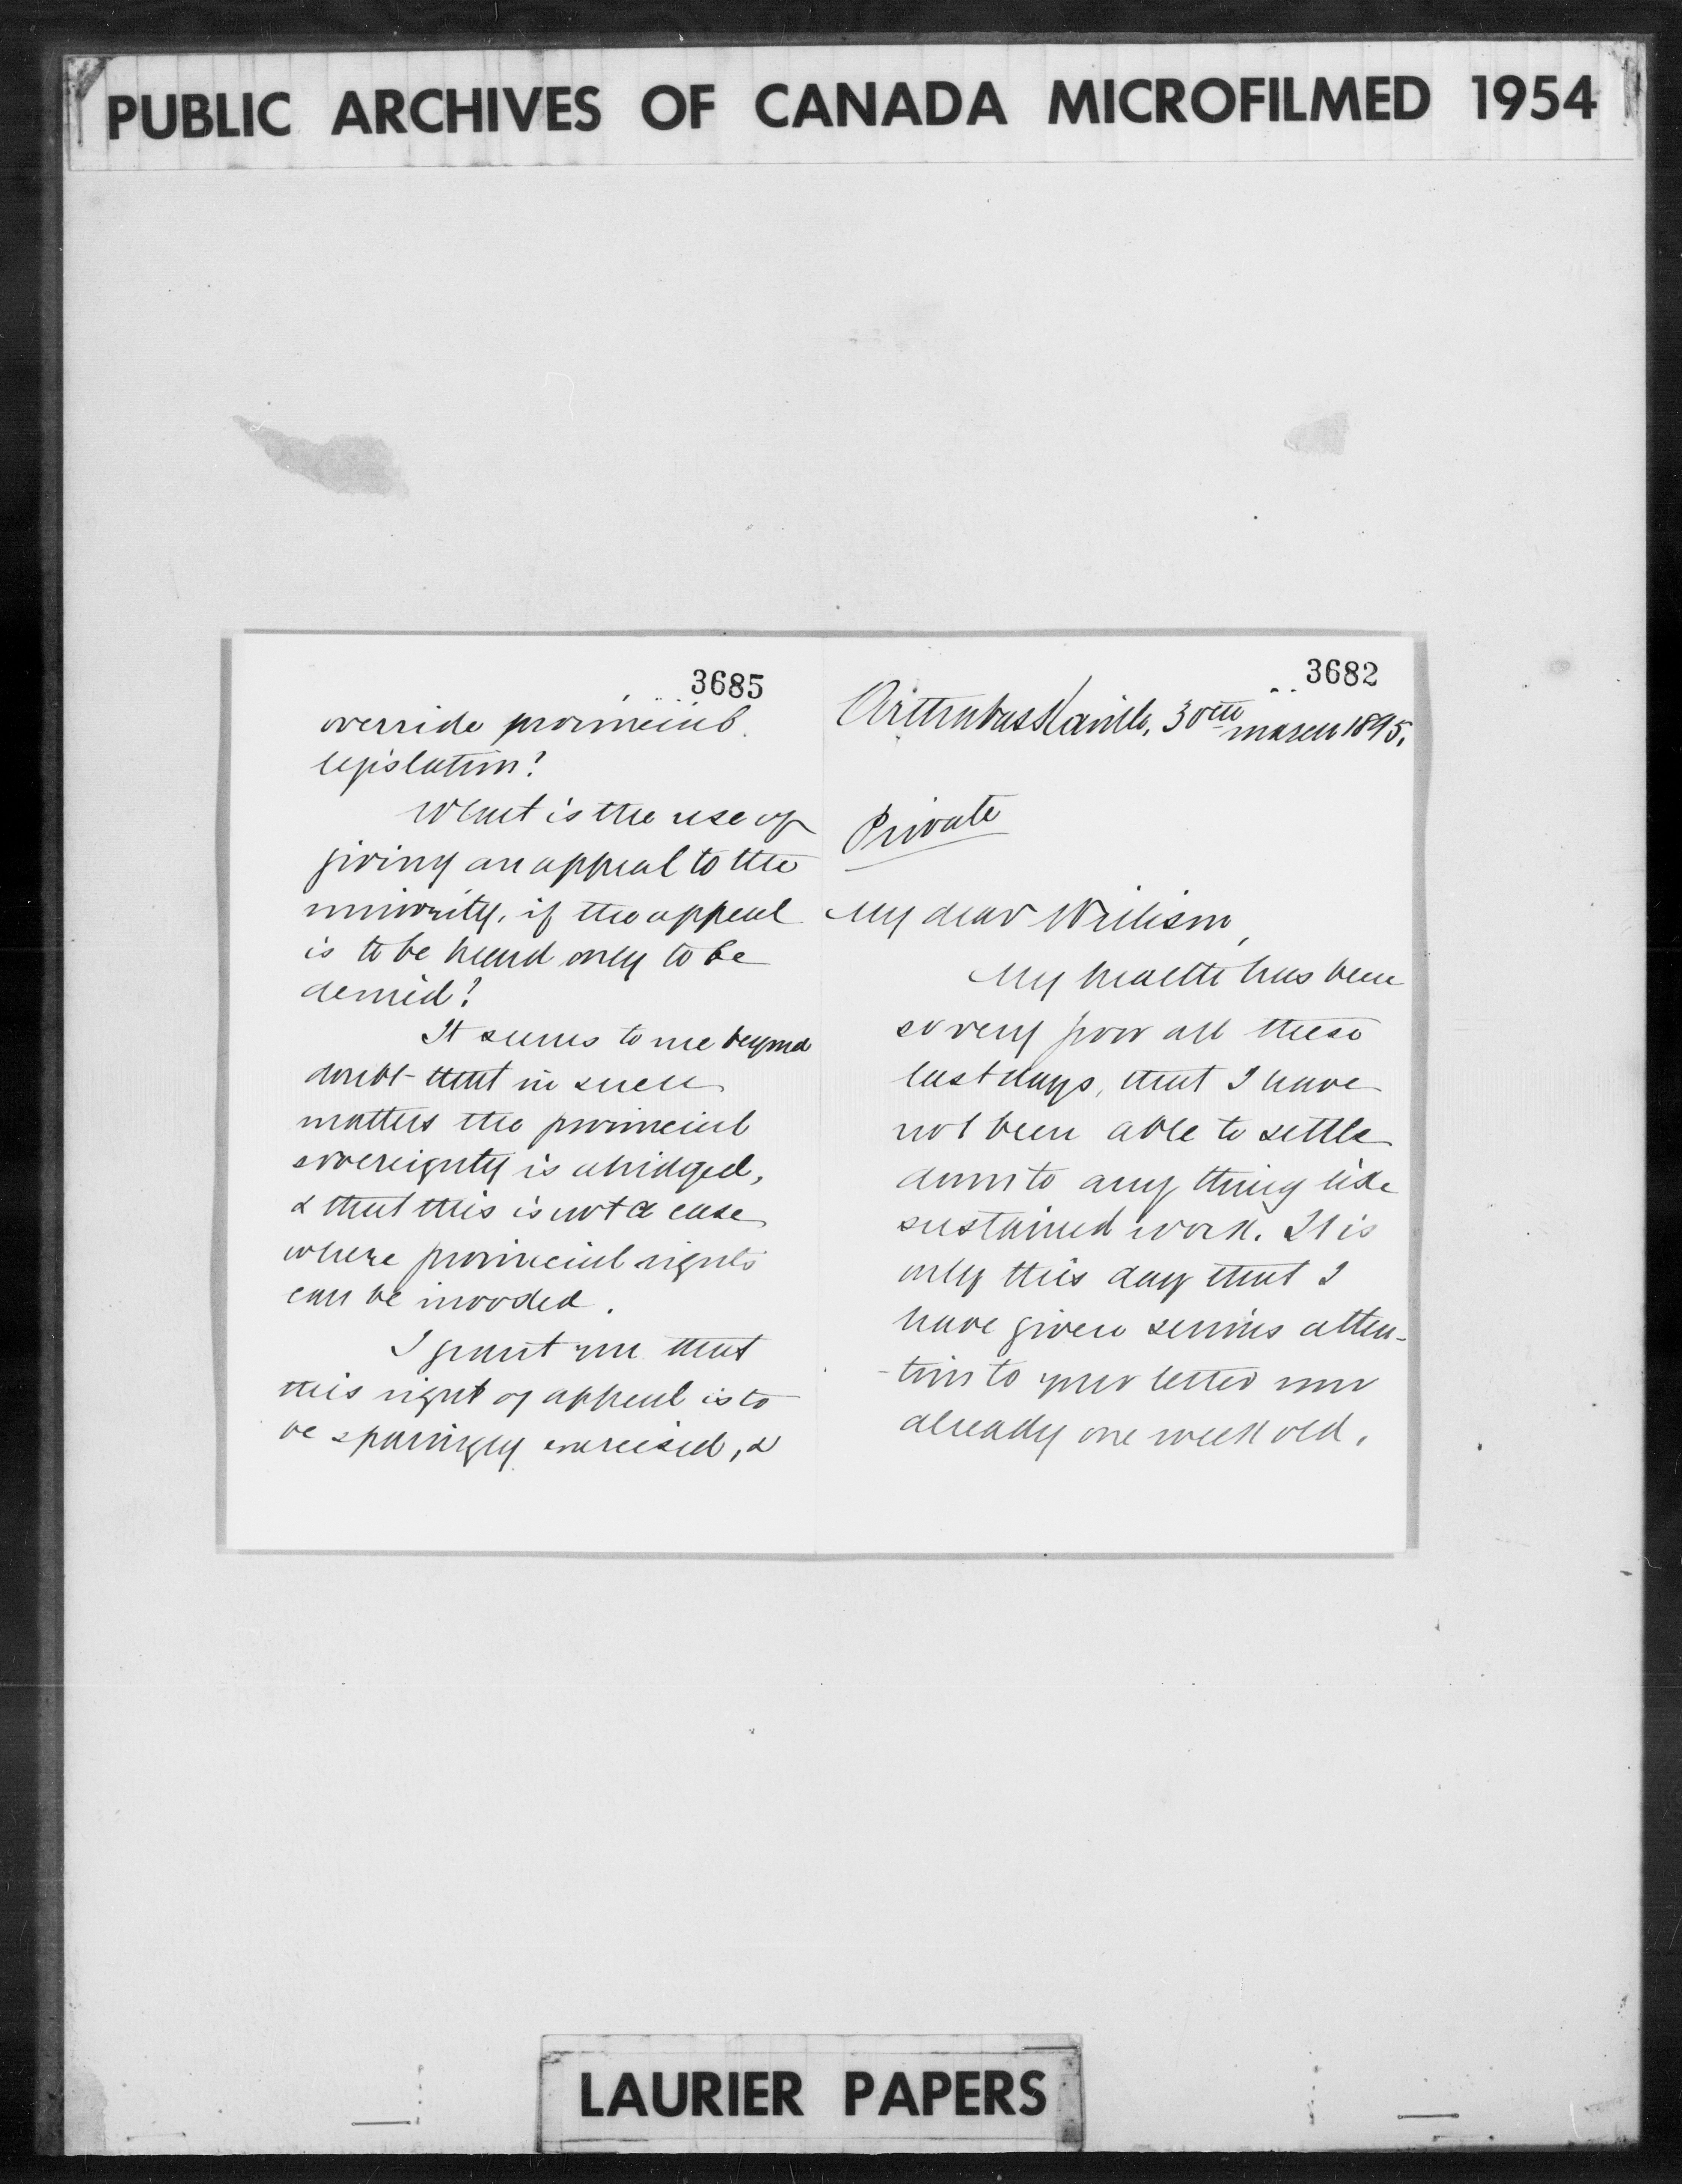 PUBLIC ARCHIVES OF CANADA MICROFILMED 1954
3685
override provincial
legislation?
What is the use of
giving an appeal to the
minority, if the appeal
is to be heard only to be
denied?
It seems to me beyond
doubt that in such
matters the provincial
sovereignty is abridged,
& that this is not a case
where provincial rights
can be invoked.
I grant you that
this right of appeal is to
be sparingly exercised, &
3682
Arthabaskaville, 30th march 1895.
Private
My dear Willison,
My health has been
so very poor all these
last days, that I have
not been able to settle
down to any thing like
sustained work. It is
only this day that I
have given serious atten-
-tion to your letter now
already one week old.
LAURIER PAPERS